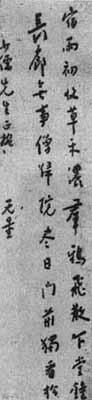 宿雨初收草木濃羣鴉飛散下堂鐘
長廊無事僧歸院盡日門前獨看松
少儒先生正搃
无量